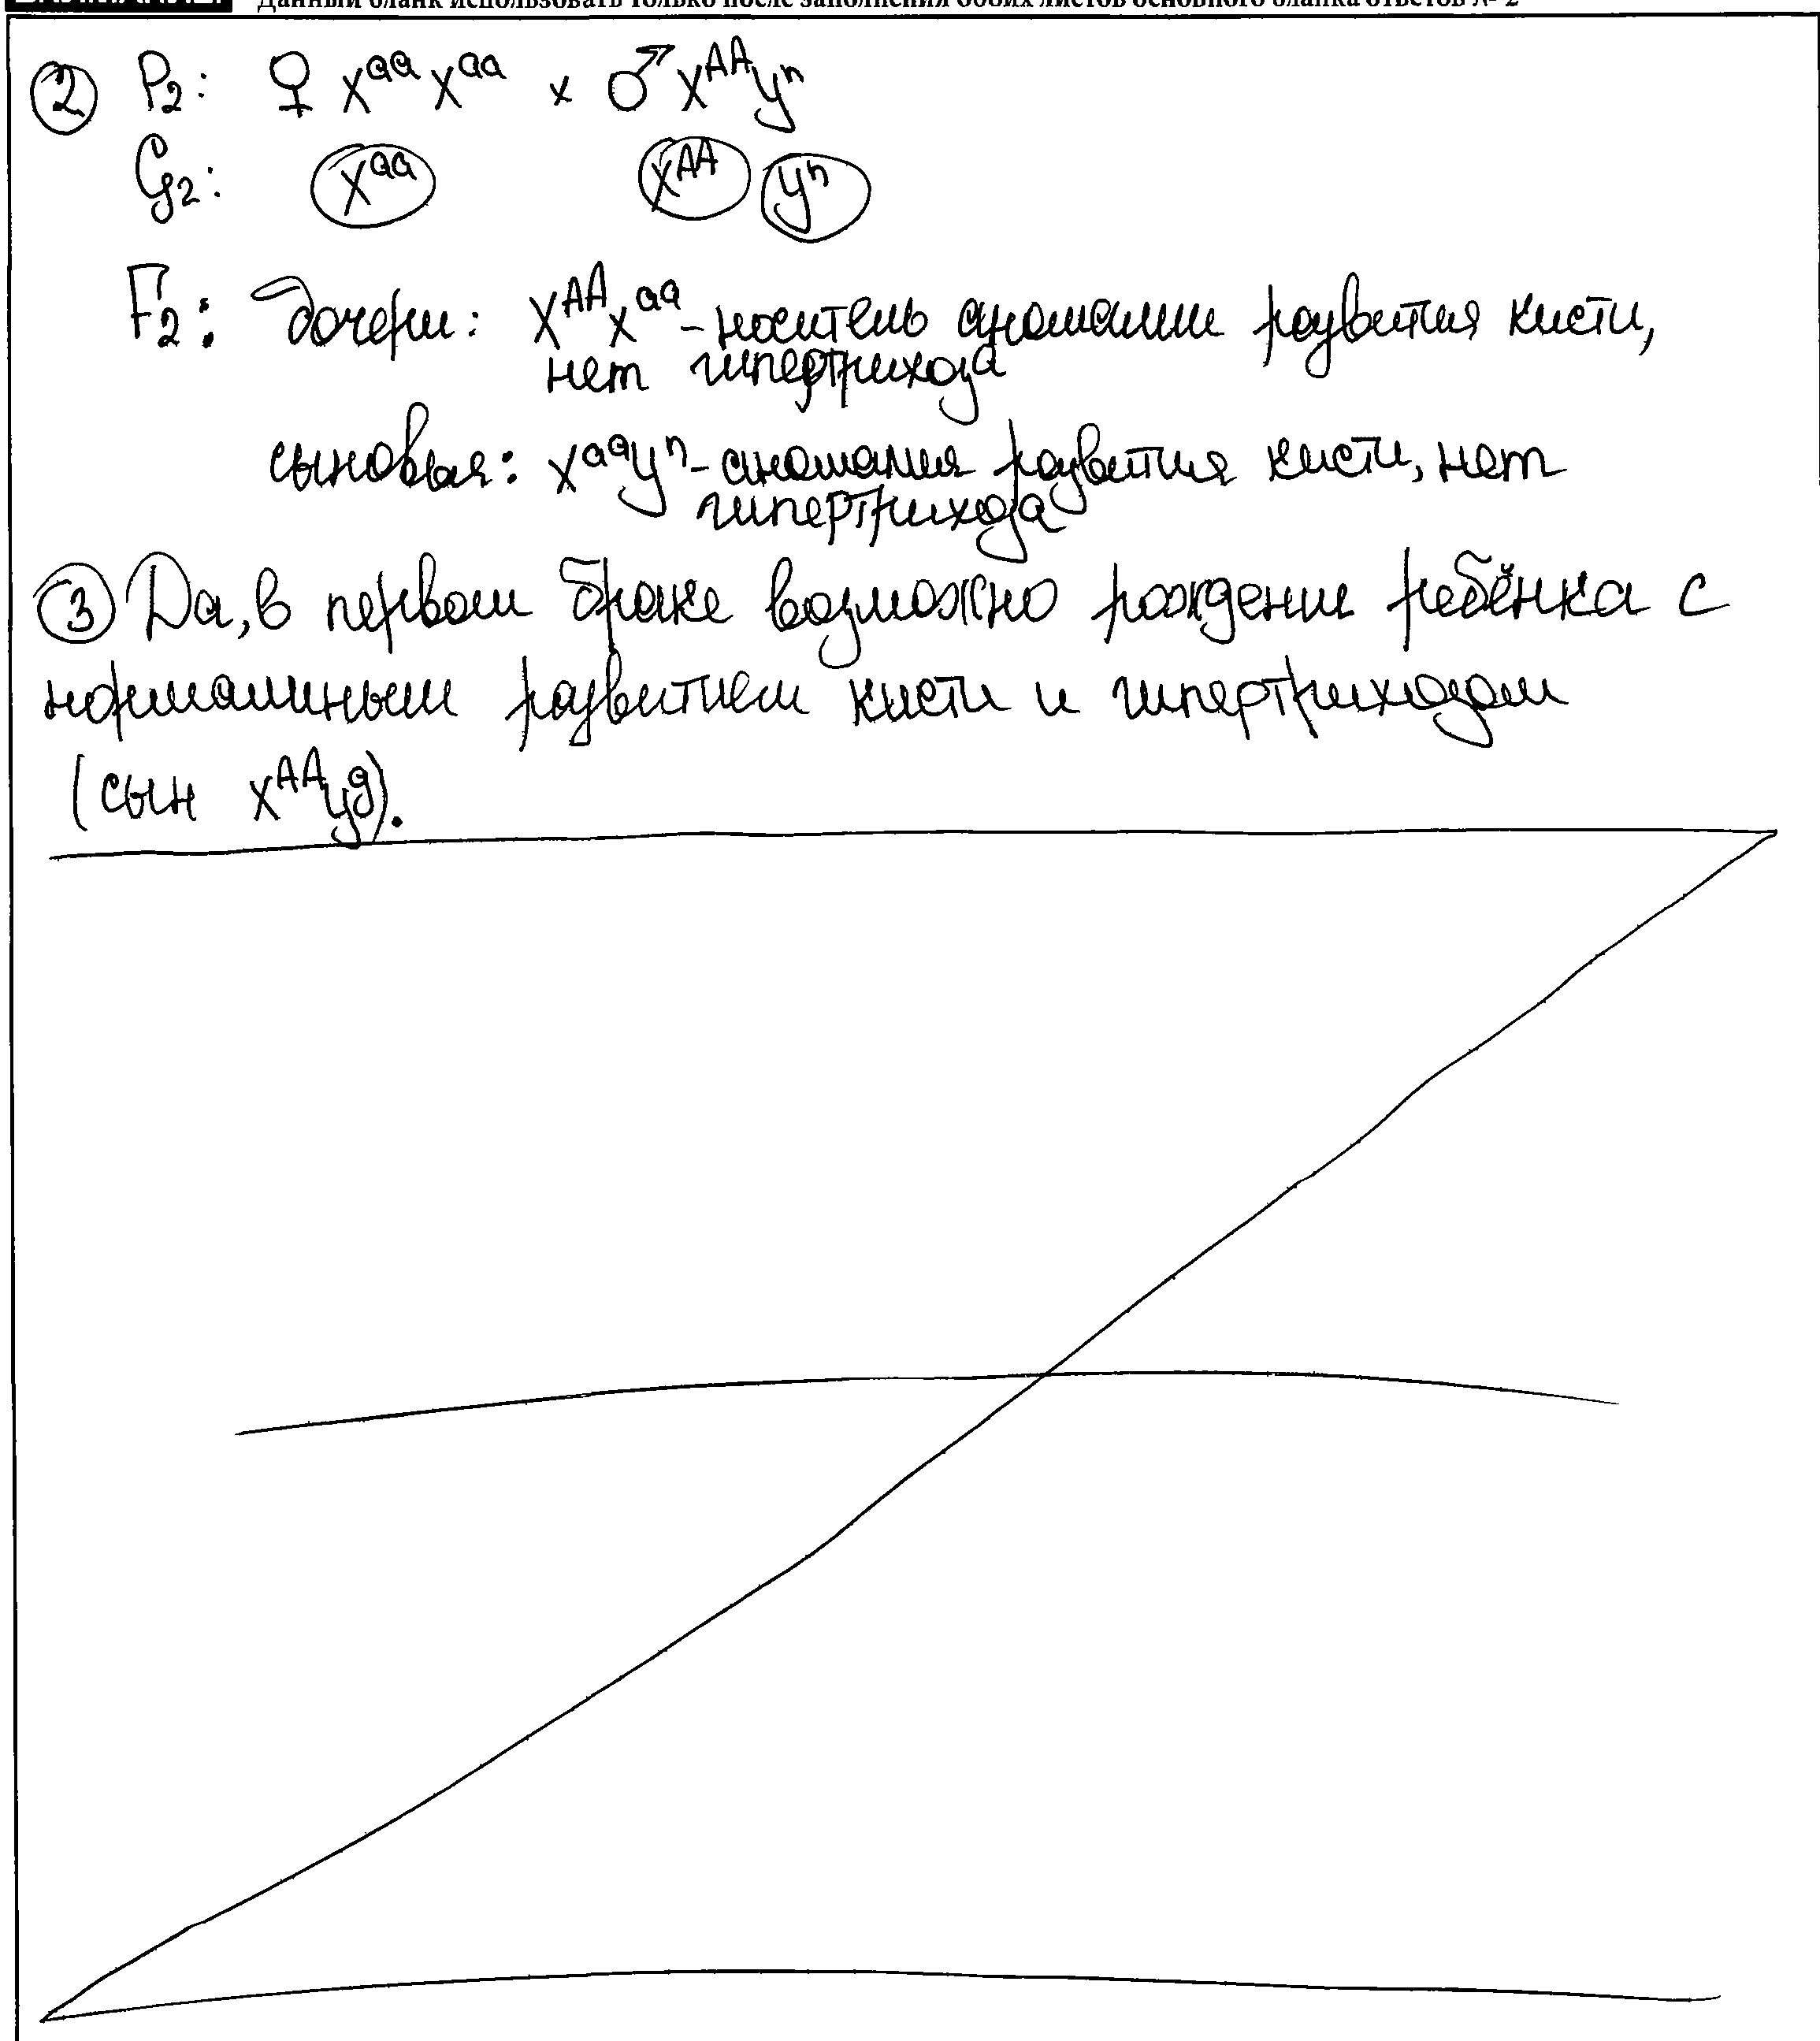 Данный бланк использовать только после заполнения обоих листов основного бланка ответов № 2
② P₂: ♀ XᵃᵃXᵃᵃ x ♂ XᴬᴬYⁿ
G₂: Xᵃᵃ Xᴬᴬ Yⁿ
F₂: дочери: XᴬᴬXᵃᵃ - носитель аномалии развития кисти,
нет гипертрихоза
сыновья: XᵃᵃYⁿ - аномалия развития кисти, нет
гипертрихоза
③ Да, в первом браке возможно рождение ребёнка с
нормальным развитием кисти и гипертрихозом
(сын XᴬᴬYᵍ).